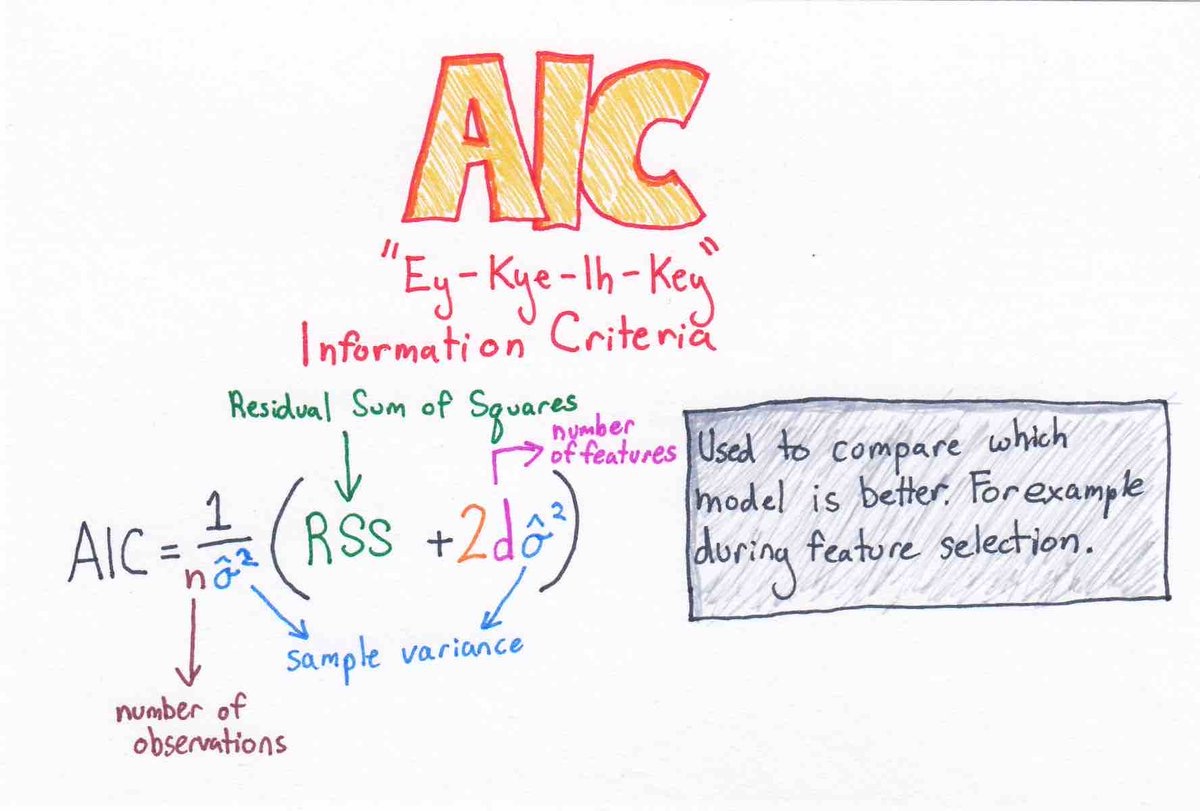 AIC
"Ey-Kye-Ih-Key"
Information Criteria
Residual Sum of Squares
number
of features
AIC = 1/nσ̂² (RSS + 2dσ̂²)
sample variance
number of
observations
Used to compare which
model is better. For example
during feature selection.